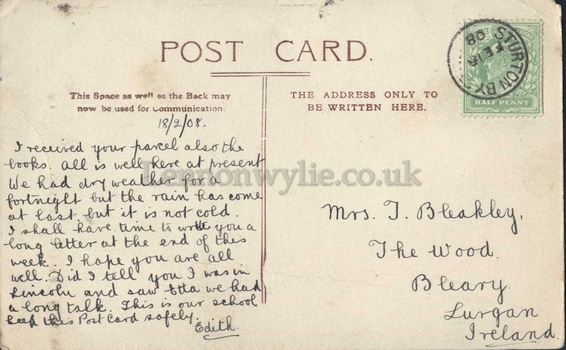 POST CARD.
This Space as well as the Back may
now be used for Communication.
THE ADDRESS ONLY TO
BE WRITTEN HERE.
STURTON BY
FE 18
08
HALF PENNY
18/2/08.
I received your parcel also the
books. All is well here at present
We had dry weather for a
fortnight but the rain has come
at last but it is not cold.
I shall have time to write you a
long letter at the end of this
week. I hope you are all
well. Did I tell you I was in
Lincoln and saw Etta we had
a long talk. This is our school
keep this Post Card safely.
Edith.
Mrs. J. Bleakley,
The Wood.
Bleary.
Lurgan
Ireland.
Lennonwylie.co.uk